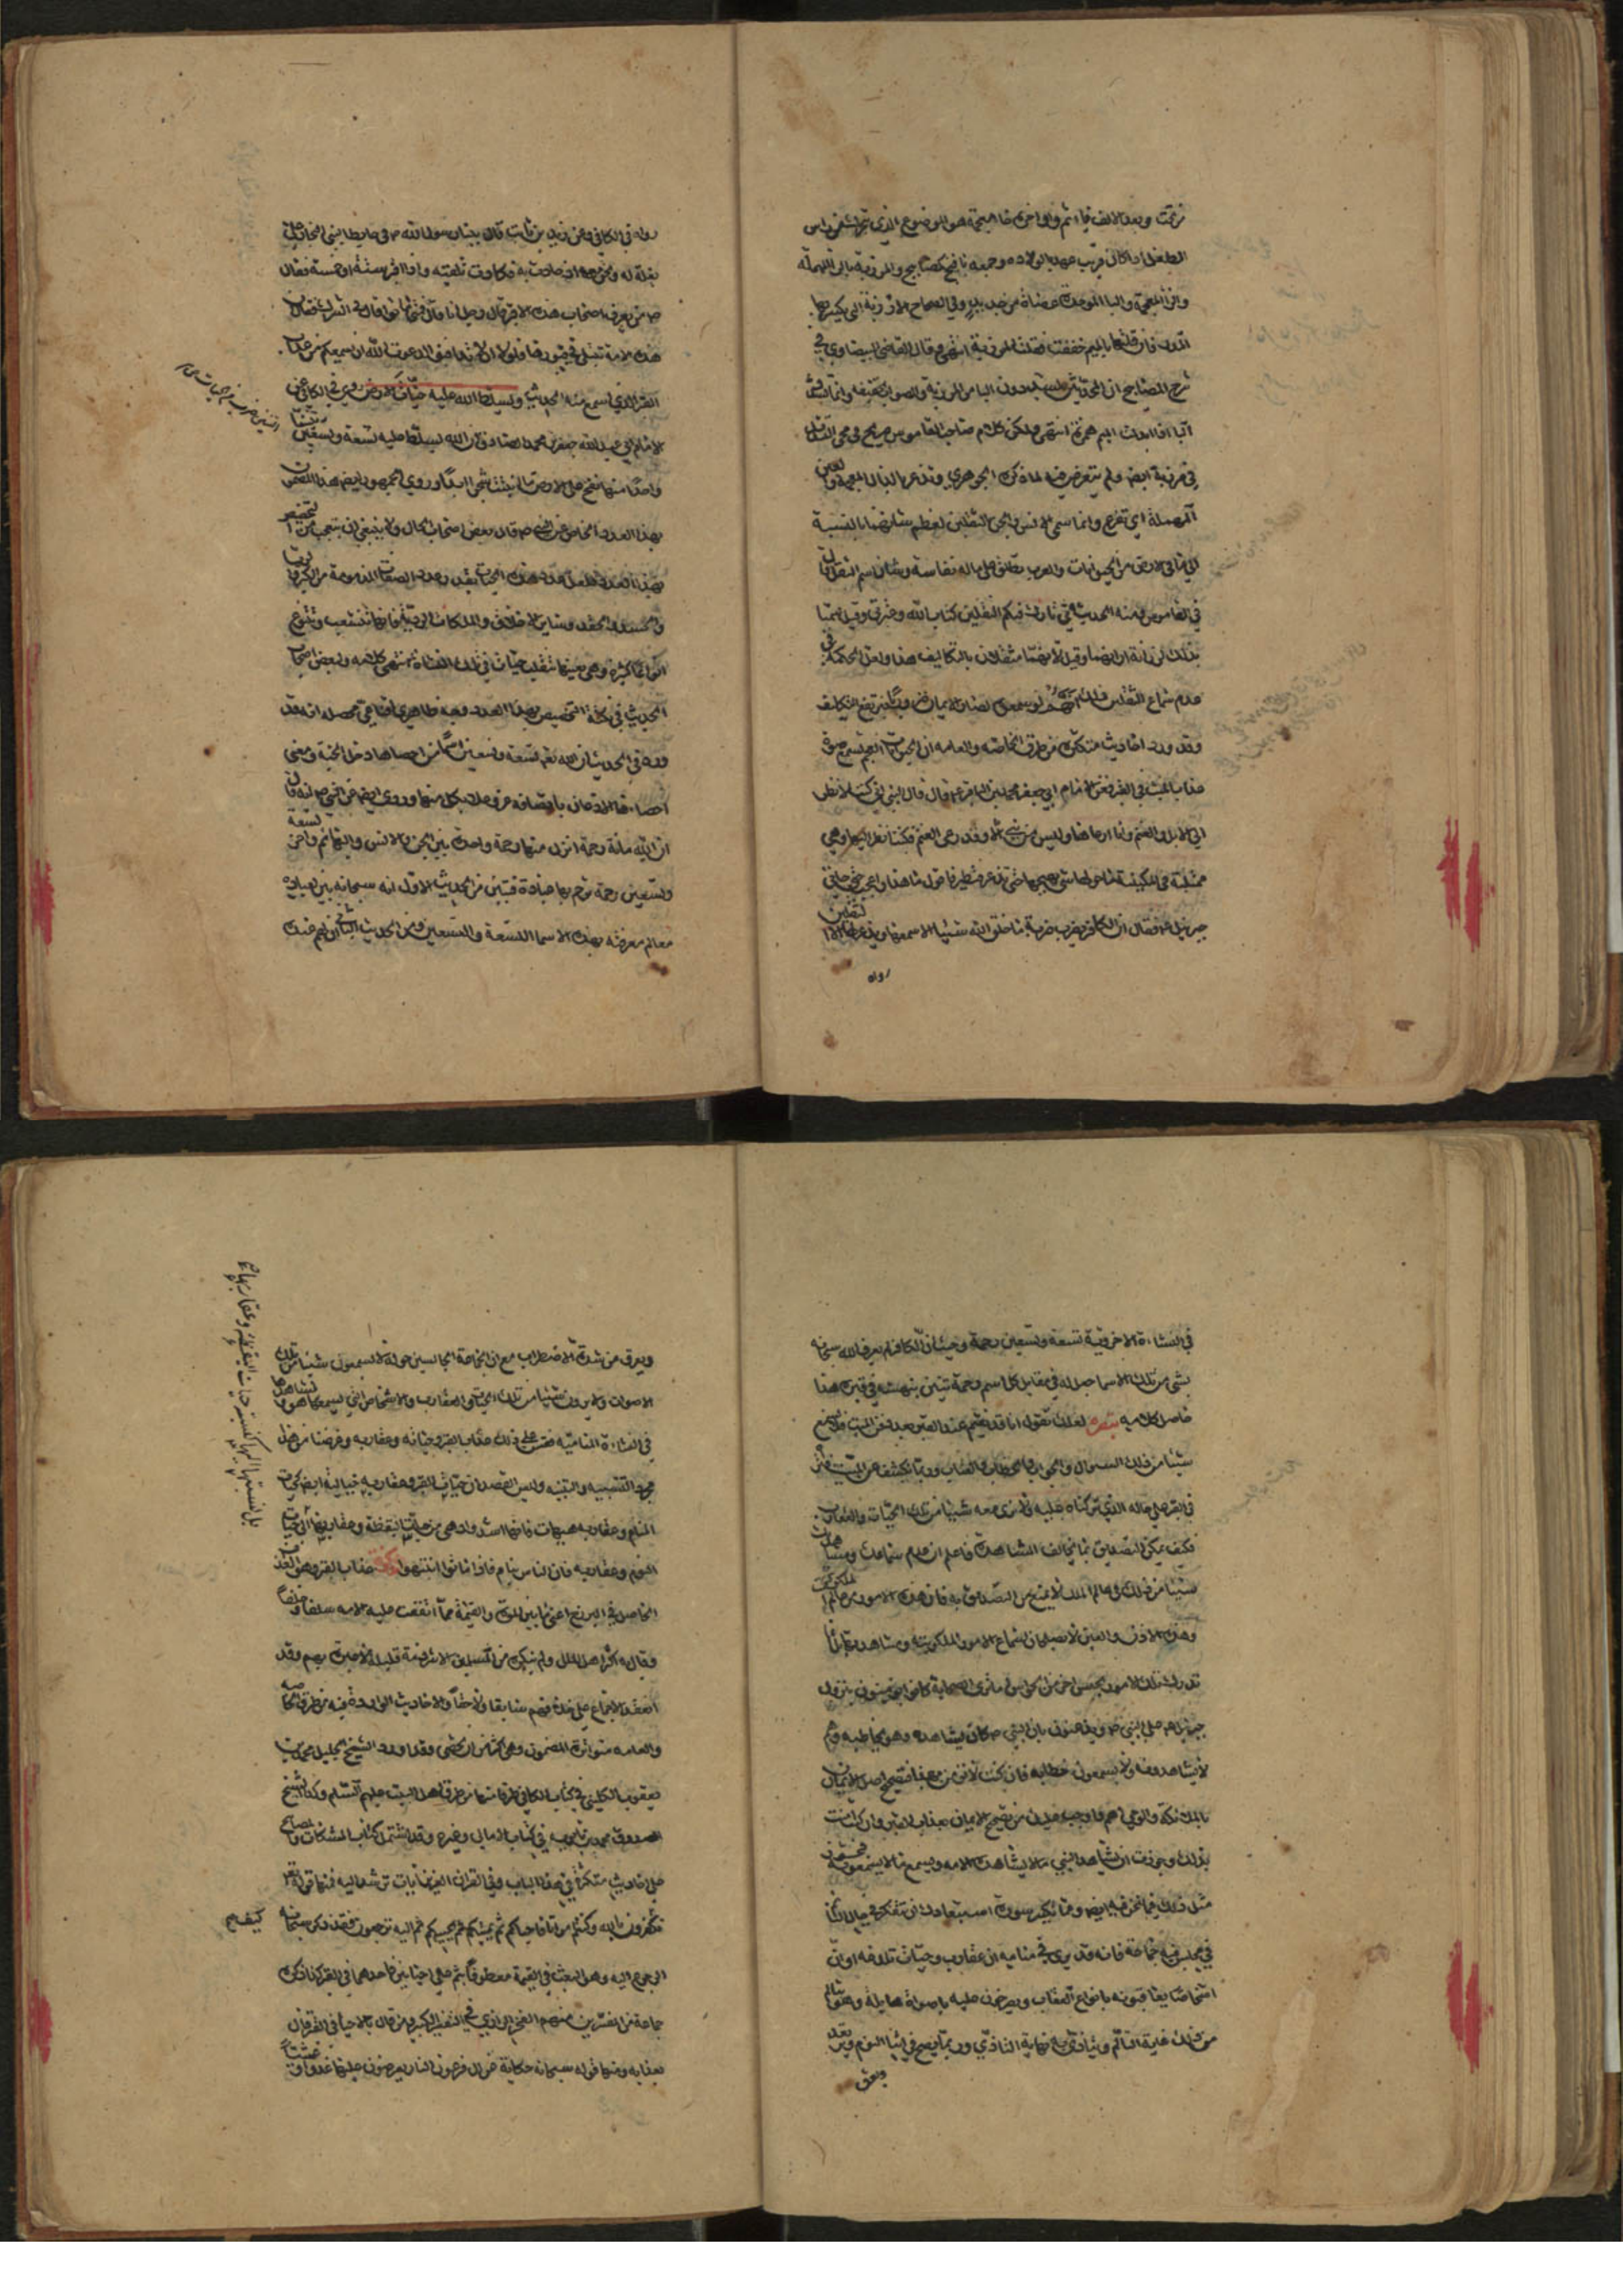 وبعد الالف فا ثم واو واخره خا معجمة هو الموضع الذي يتحرك من راس
الطفل اذا كان قريب عهد بالولادة وجمعه يافيخ كمصابيح والمرزبة بالراء المهملة
والزا المعجمة والبا الموحدة عصاة من حديد وفي الصحاح الارزبة التي يكسر بها
المدر فان قلتها بالميم خففت فقلت المرزبة انتهى وقال القاضي البيضاوي في
شرح المصابيح ان المحدثين يشددون البا من المرزبة والصواب تخفيفه وانما تشدد
البا اذا ابدلت الميم همزة انتهى ولكن كلام صاحب القاموس صريح في مجي التشديد
في مرزبة ايضا ولم يتعرض فيه لما ذكره الجوهري وتذعر بالذال المعجمة والعين
المهملة اي تفزع وانما سمي الانس والجن الثقلين لعظم شانهما بالنسبة
الى ما في الارض من الحيوانات والعرب تطلق على ماله نفاسة وشان اسم الثقل قال
في القاموس ومنه الحديث اني تارك فيكم الثقلين كتاب الله وعترتي وقيل سميا
بذلك لرزانة ارائهما وقيل لانهما مثقلان بالتكاليف هذا ولعل الحكمة في
عدم سماع الثقلين ذلك انهم لو سمعوه لصار الايمان ضروريا فيرتفع التكليف
وقد ورد احاديث متكثرة من طرق الخاصة والعامة ان الحيوانات العجم تسمع صوت
عذاب الميت في القبر فعن الامام ابي جعفر محمد بن الباقر ع قال قال النبي اني كنت لانظر
الى الابل والغنم وانا ارعاها وليس من نبي الا وقد رعى الغنم فكنت انظر اليها وهي
متمكنة في المكينة ما حولها شي يهيجها حتى تذعر فتطير فاقول ما هذا واعجب حتى حدثني
جبرئيل ع فقال ان الكافر يضرب ضربة ما خلق الله شيئا الا سمعها ويذعر لها الا الثقلين
رواه
رواه في الكافي وعن زيد بن ثابت قال بينا رسول الله ص في حايط لبني النجار على
بغلة له ونحن معه اذ حادت به فكادت تلقيه واذا اقبر ستة او خمسة فقال
ص من يعرف اصحاب هذه الاقبر قال رجل انا قال فمتى ماتوا قال في الشرك فقال ان
هذه الامة تبتلى في قبورها فلولا ان لا تدافنوا لدعوت الله ان يسمعكم من عذاب
القبر الذي اسمع منه الحديث ويسلط الله عليه حيات الارض روى في الكافي عن
الامام ابي عبد الله جعفر بن محمد الصادق ان الله يسلط عليه تسعة وتسعين تنينا
واحدا منها نفخ على الارض ما انبتت شجرا ابدا وروى الجمهور ايضا هذا المضمون
بهذا العدد الخاص عن النبي ص قال بعض اصحاب الحال ولا ينبغي ان يتعجب من التخصيص
بهذا العدد فلعل عدد هذه الحيات بقدر عدد الصفات المذمومة من الكبر والريا
والحسد والحقد وساير الاخلاق والملكات الردية فانها تتشعب وتتنوع
انواعا كثيرة وهي بعينها تنقلب حيات في تلك النشاة انتهى كلامه ولبعض اصحاب
الحديث في نكتة التخصيص بهذا العدد وجه ظاهري اقناعي محصله انه قد
ورد في الحديث ان لله تع تسعة وتسعين اسما من احصاها دخل الجنة ومعنى
احصاءها الاذعان باتصافه عز وعلا بكل منها وروي ايضا عن النبي ص انه قال
ان لله مائة رحمة انزل منها رحمة واحدة بين الجن والانس والبهائم واخر تسعة
وتسعين رحمة يرحم بها عباده فتبين من الحديث الاول انه سبحانه بين لعباده
معالم معرفته بهذه الاسما التسعة والتسعين ومن الحديث الثاني ان لهم عنده
في النشاءة الاخروية تسعة وتسعين رحمة وحيث ان الكافر لم يعرف الله سبحانه
بشي من تلك الاسما جعل له في مقابل كل اسم ورحمة تنين ينهشه في قبره هذا
حاصل كلامه تبصره لعلك تقول انا قد نقيم عند القبر بعد دفن الميت فلا نسمع
شيئا من ذلك السوال والجواب والخطاب والعتاب وربما نكشف عن الميت فنرى
في القبر على حاله الذي تركناه عليه ولا نرى معه شيئا من تلك الحيات والعقارب
فكيف يمكن التصديق بما يخالف المشاهدة فاعلم ان عدم سماعك ومشاهدتك
شيئا من ذلك في عالم الملك لا يمنع من التصديق به فان هذه الامور من عالم الملكوت
وهذه الاذن والعين لا يصلحان لسماع الامور الملكوتية ومشاهدتها انما
تدرك تلك الامور بحس اخر من الحواس اما ترى الصحابة كانوا يؤمنون بنزول
جبرئيل ع على النبي ص ويذعنون بان النبي ص كان يشاهده وهو يخاطبه وهم
لا يشاهدونه ولا يسمعون خطابه فان كنت لا تؤمن بهذا فتصحيح اصل الايمان
بالملائكة والوحي اهم واوجب عليك من تصحيح الايمان بعذاب القبر وان كنت امنت
بذلك وجوزت ان يشاهد النبي ما لا يشاهده الامة ويسمع ما لا يسمعونه
مثل ذلك فيما نحن فيه ايضا ومما يكسر سورة استبعادك ان تتفكر في حال النائم
في مجلس فيه جماعة فانه قد يرى في منامه ان عقارب وحيات تلدغه او ان
اشخاصا يعاقبونه بانواع العقاب ويصرخون عليه باصواة هايلة وهو يتالم
من ذلك غاية التالم ويتاذى به نهاية التاذي وربما يصيح في اثنا النوم ويرتعد
ويعرق
ويعرق من شدة الاضطراب مع ان الجماعة الجالسين حوله لا يسمعون شيئا من تلك
الاصوات ولا يرون شيئا من تلك الحيات والعقارب والاشخاص التي يسمعها هو ويشاهدها
في النشاءة المنامية فقس على ذلك عذاب القبر وحياته وعقاربه وغرضنا من هذا
مجرد التشبيه والتنبيه وليس القصد ان حيات القبر وعقاربه خيالية ايضا كحيات
المنام وعقاربه هيهات فانها اشد وادهى من حيات اليقظة وعقاربها الى حيات
النوم وعقاربه فان الناس نيام فاذا ماتوا انتبهوا عذاب القبر وهو العذاب
الحاصل في البرزخ اعني ما بين الموت والقيمة مما اتفقت عليه الامة سلفا وخلفا
وقال به اكثر اهل الملل ولم ينكره من المسلمين الا شرذمة قليلة لا عبرة بهم وقد
انعقد الاجماع على خلافهم سابقا ولاحقا والاحاديث الواردة فيه من طرق الخاصة
والعامة متواترة المضمون وهي اكثر من ان تحصى وقد اورد الشيخ الجليل محمد بن
يعقوب الكليني في كتاب الكافي طرفا منها من طرق اهل البيت عليهم السلام وكذا الشيخ
الصدوق محمد بن بابويه في كتاب الامالي وغيره وقد اشتمل كتاب المشكات والمصابيح
على احاديث متكثرة في هذا الباب وفي القران العزيز ايات ترشد اليه فمنها قوله تع
تكفرون بالله وكنتم امواتا فاحياكم ثم يميتكم ثم يحييكم ثم اليه ترجعون فقد ذكر سبحانه
الرجوع اليه وهو البعث في القيمة معطوفا بثم على احيائين فاحدهما في القبر كما ذكره
جماعة من المفسرين منهم الفخر الرازي في التفسير الكبير ومن قال بالاحيا في القبر قال
بعذابه ومنها قوله سبحانه حكاية عن ال فرعون النار يعرضون عليها غدوا وعشيا
كيف